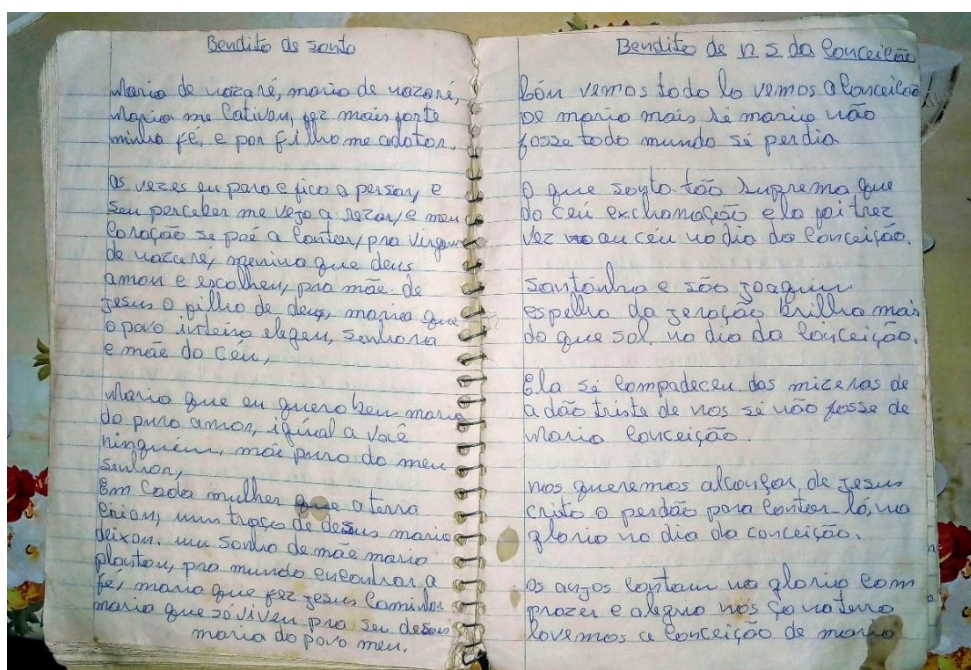 Bendito de santo
Maria de nazaré, maria de nazaré,
Maria me Cativou, fez mais forte
minha fé, e por filho me adotou.
as vezes eu paro e fico a pensar, e
seu perceber me vejo a rezar, e meu
Coração se poé a Cantar, pra virgem
de nazaré, menina que deus
amou e escolheu, pra mãe de
jesus o filho de deus, maria que
o povo inteiro elegeu, senhora
e mãe do Céu,
Maria que eu quero bem maria
do puro amor, igual a você
ninguém, mãe pura do meu
senhor,
Em Cada mulher que a terra
Criou, um traço de deus maria
deixou. um sonho de mãe maria
plantou, pra mundo encontrar a
fé, maria que fez jesus Caminhar
maria que só viveu pra seu deus
maria do povo meu.
Bendito de n s da Conceição
Bón vemos todo lo vemos a Conceicão
De maria mais sé maria não
fosse todo mundo sí perdia
O que soyto tão suprema que
do céu exchamação ela foi trez
vez ao céu no dia da Conceição.
santánha e são joaquim
espelho da jeração brilha mais
do que sol, no dia da Conceição.
Ela sí Compadeceu das miceras de
a dão triste de nos sí não fosse de
Maria Conceição.
nos queremos alcançar, de jesus
cristo o perdão para Canter-lá, na
gloria no dia da conceição.
os anjos Cantam na gloria Com
prazer e alegria nos Ca na terra
lovemos a Conceição de maria